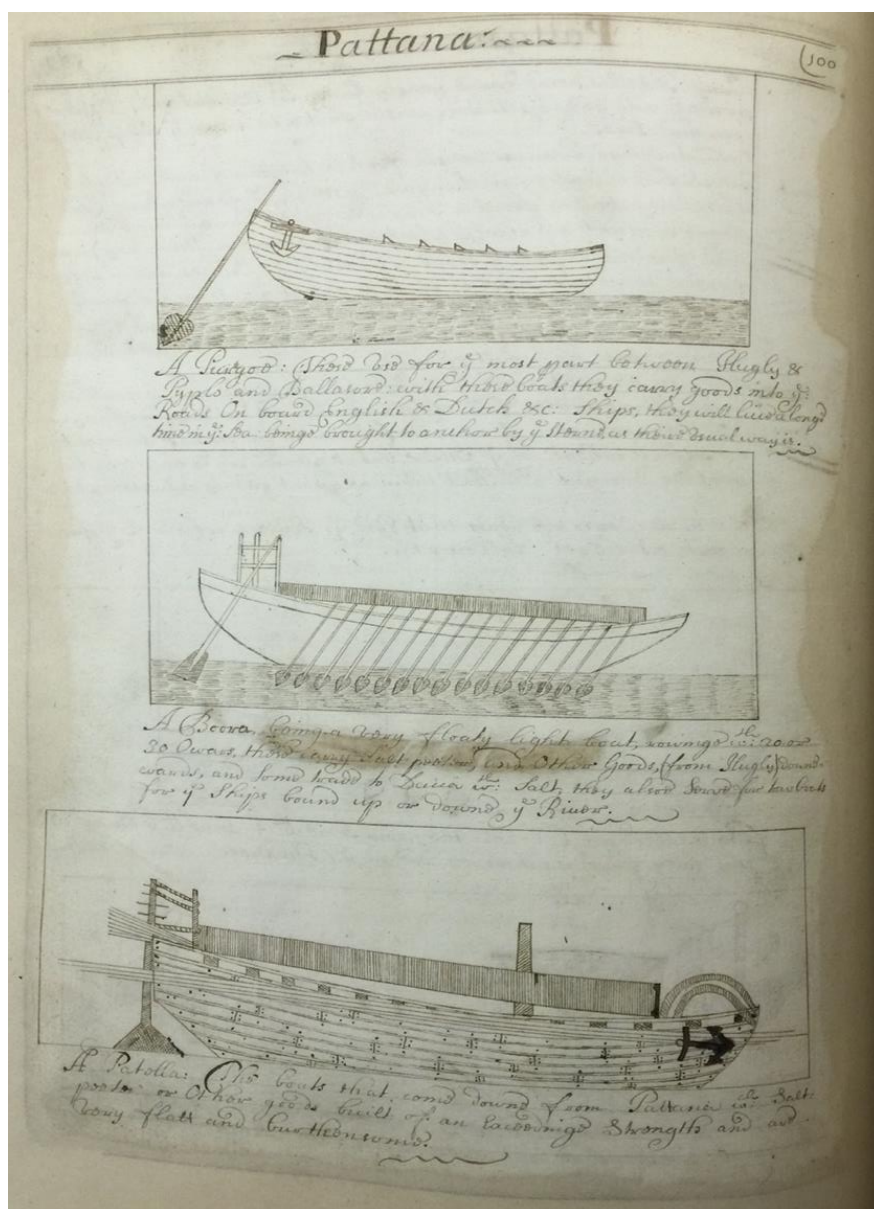 Pattana:
100
A Purgoe: These Use for yᵉ most part between Hugly &
Pyplo and Ballasore: with these boats they carry goods into yᵉ:
Roads On board English & Dutch &c: Ships, they will live a longe
time in yᵉ: Sea: beinge brought to anchor by yᵉ Sterne, as theire Usual way is.
A Boora, being a very floaty light boat, rowinge wᵗʰ: 20 or
30 Owars, these carry Salt peeter, and Other Goods, (from Hugly) downe-
wards, and some trade to Dacca wᵗʰ: Salt, they alsoe Serve for tow boats
for yᵉ Ships bound up or downe yᵉ River.
A Patella: The boats that come downe from Pattana wᵗʰ: Salt-
peeter or Other goods built of an Exceedinge Strength and are
very flatt and burthensome.